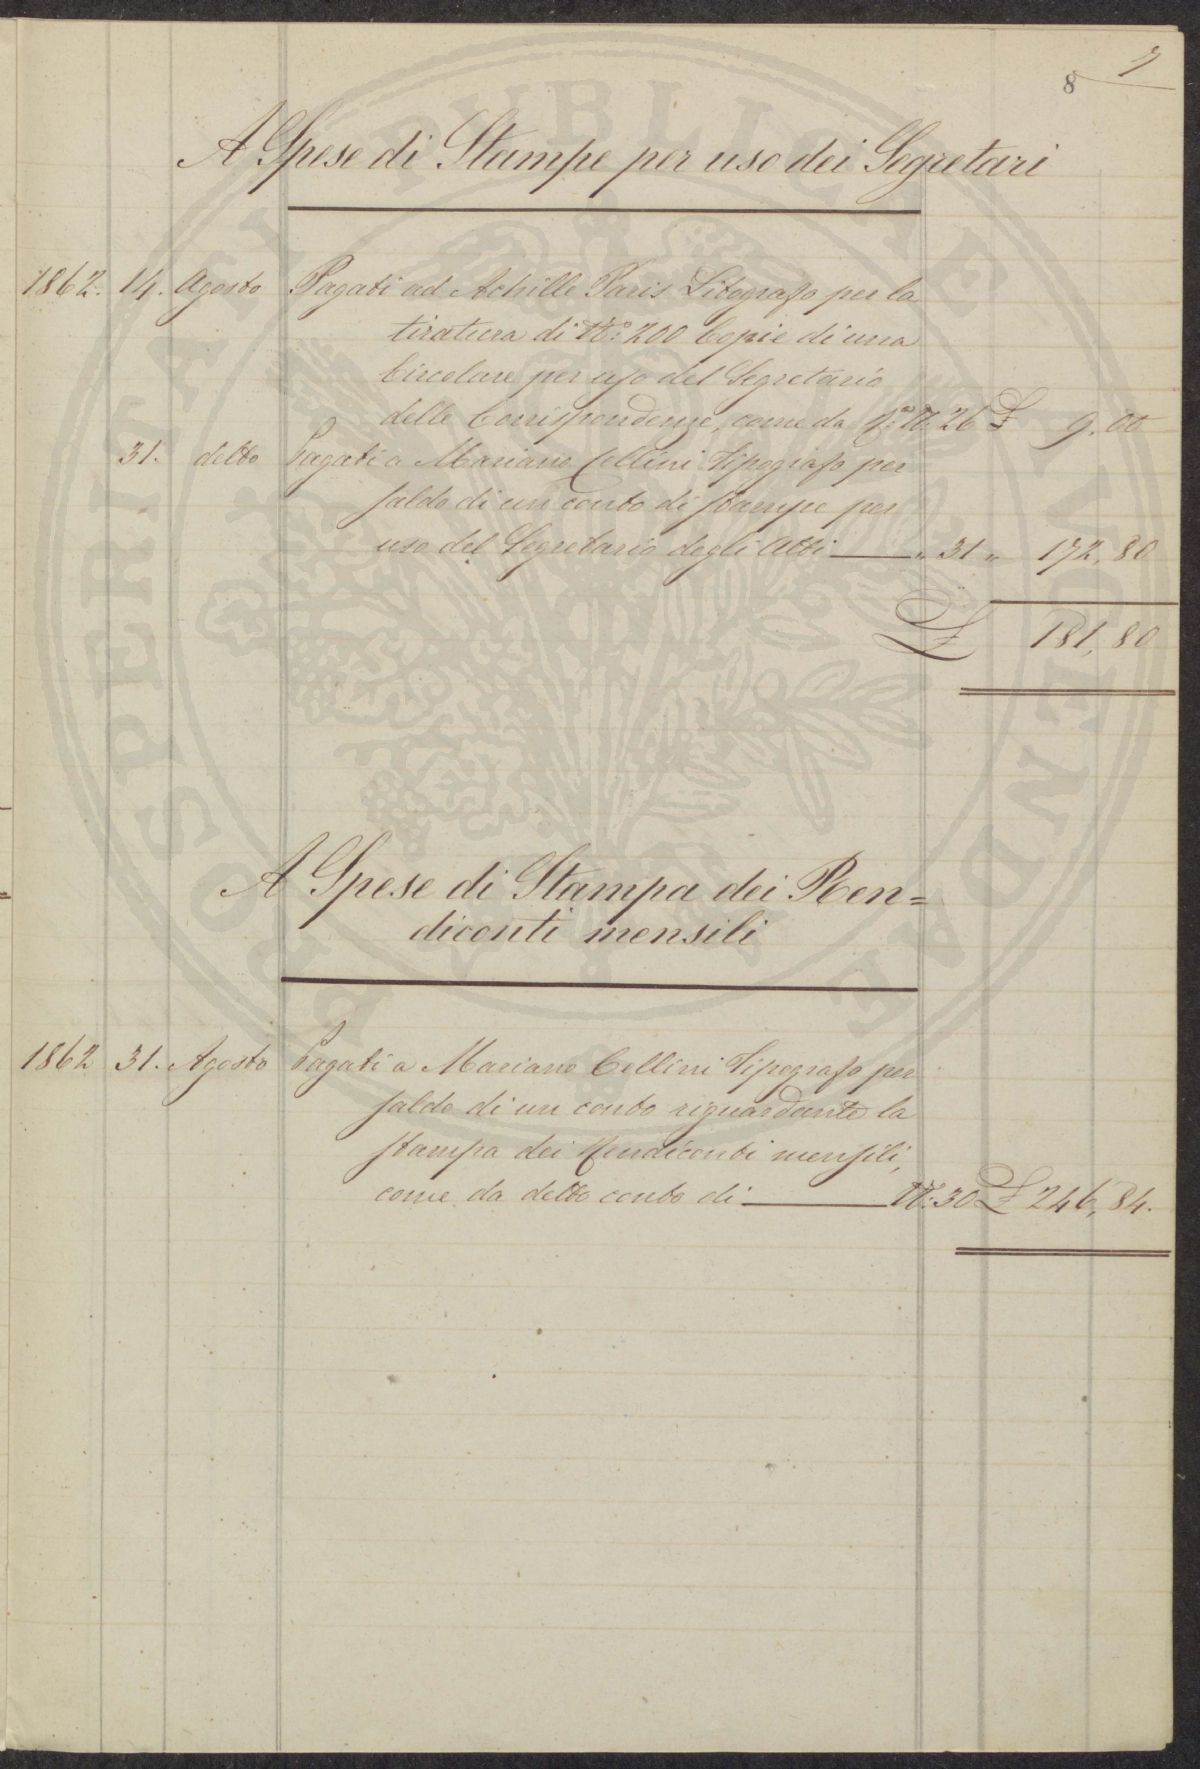 8 7
A Spese di Stampe per uso dei Segretari
1862. 14. Agosto Pagati ad Achille Paris Litografo per la
tiratura di N.° 200 Copie di una
Circolare per uso del Segretario
delle Corrispondenze, come da N. 26 £ 9.00
31. detto Pagati a Mariano Cellini Tipografo per
saldo di un conto di stampe per
uso del Segretario degli Atti " 31 " 172,80
£ 181,80
A Spese di Stampa dei Ren=
diconti mensili
1862 31. Agosto Pagati a Mariano Cellini Tipografo per
saldo di un conto riguardante la
stampa dei Rendiconti mensili,
come da detto conto di N. 30 £ 246,84.
PROSPERITATI PUBLICAE AUGENDAE